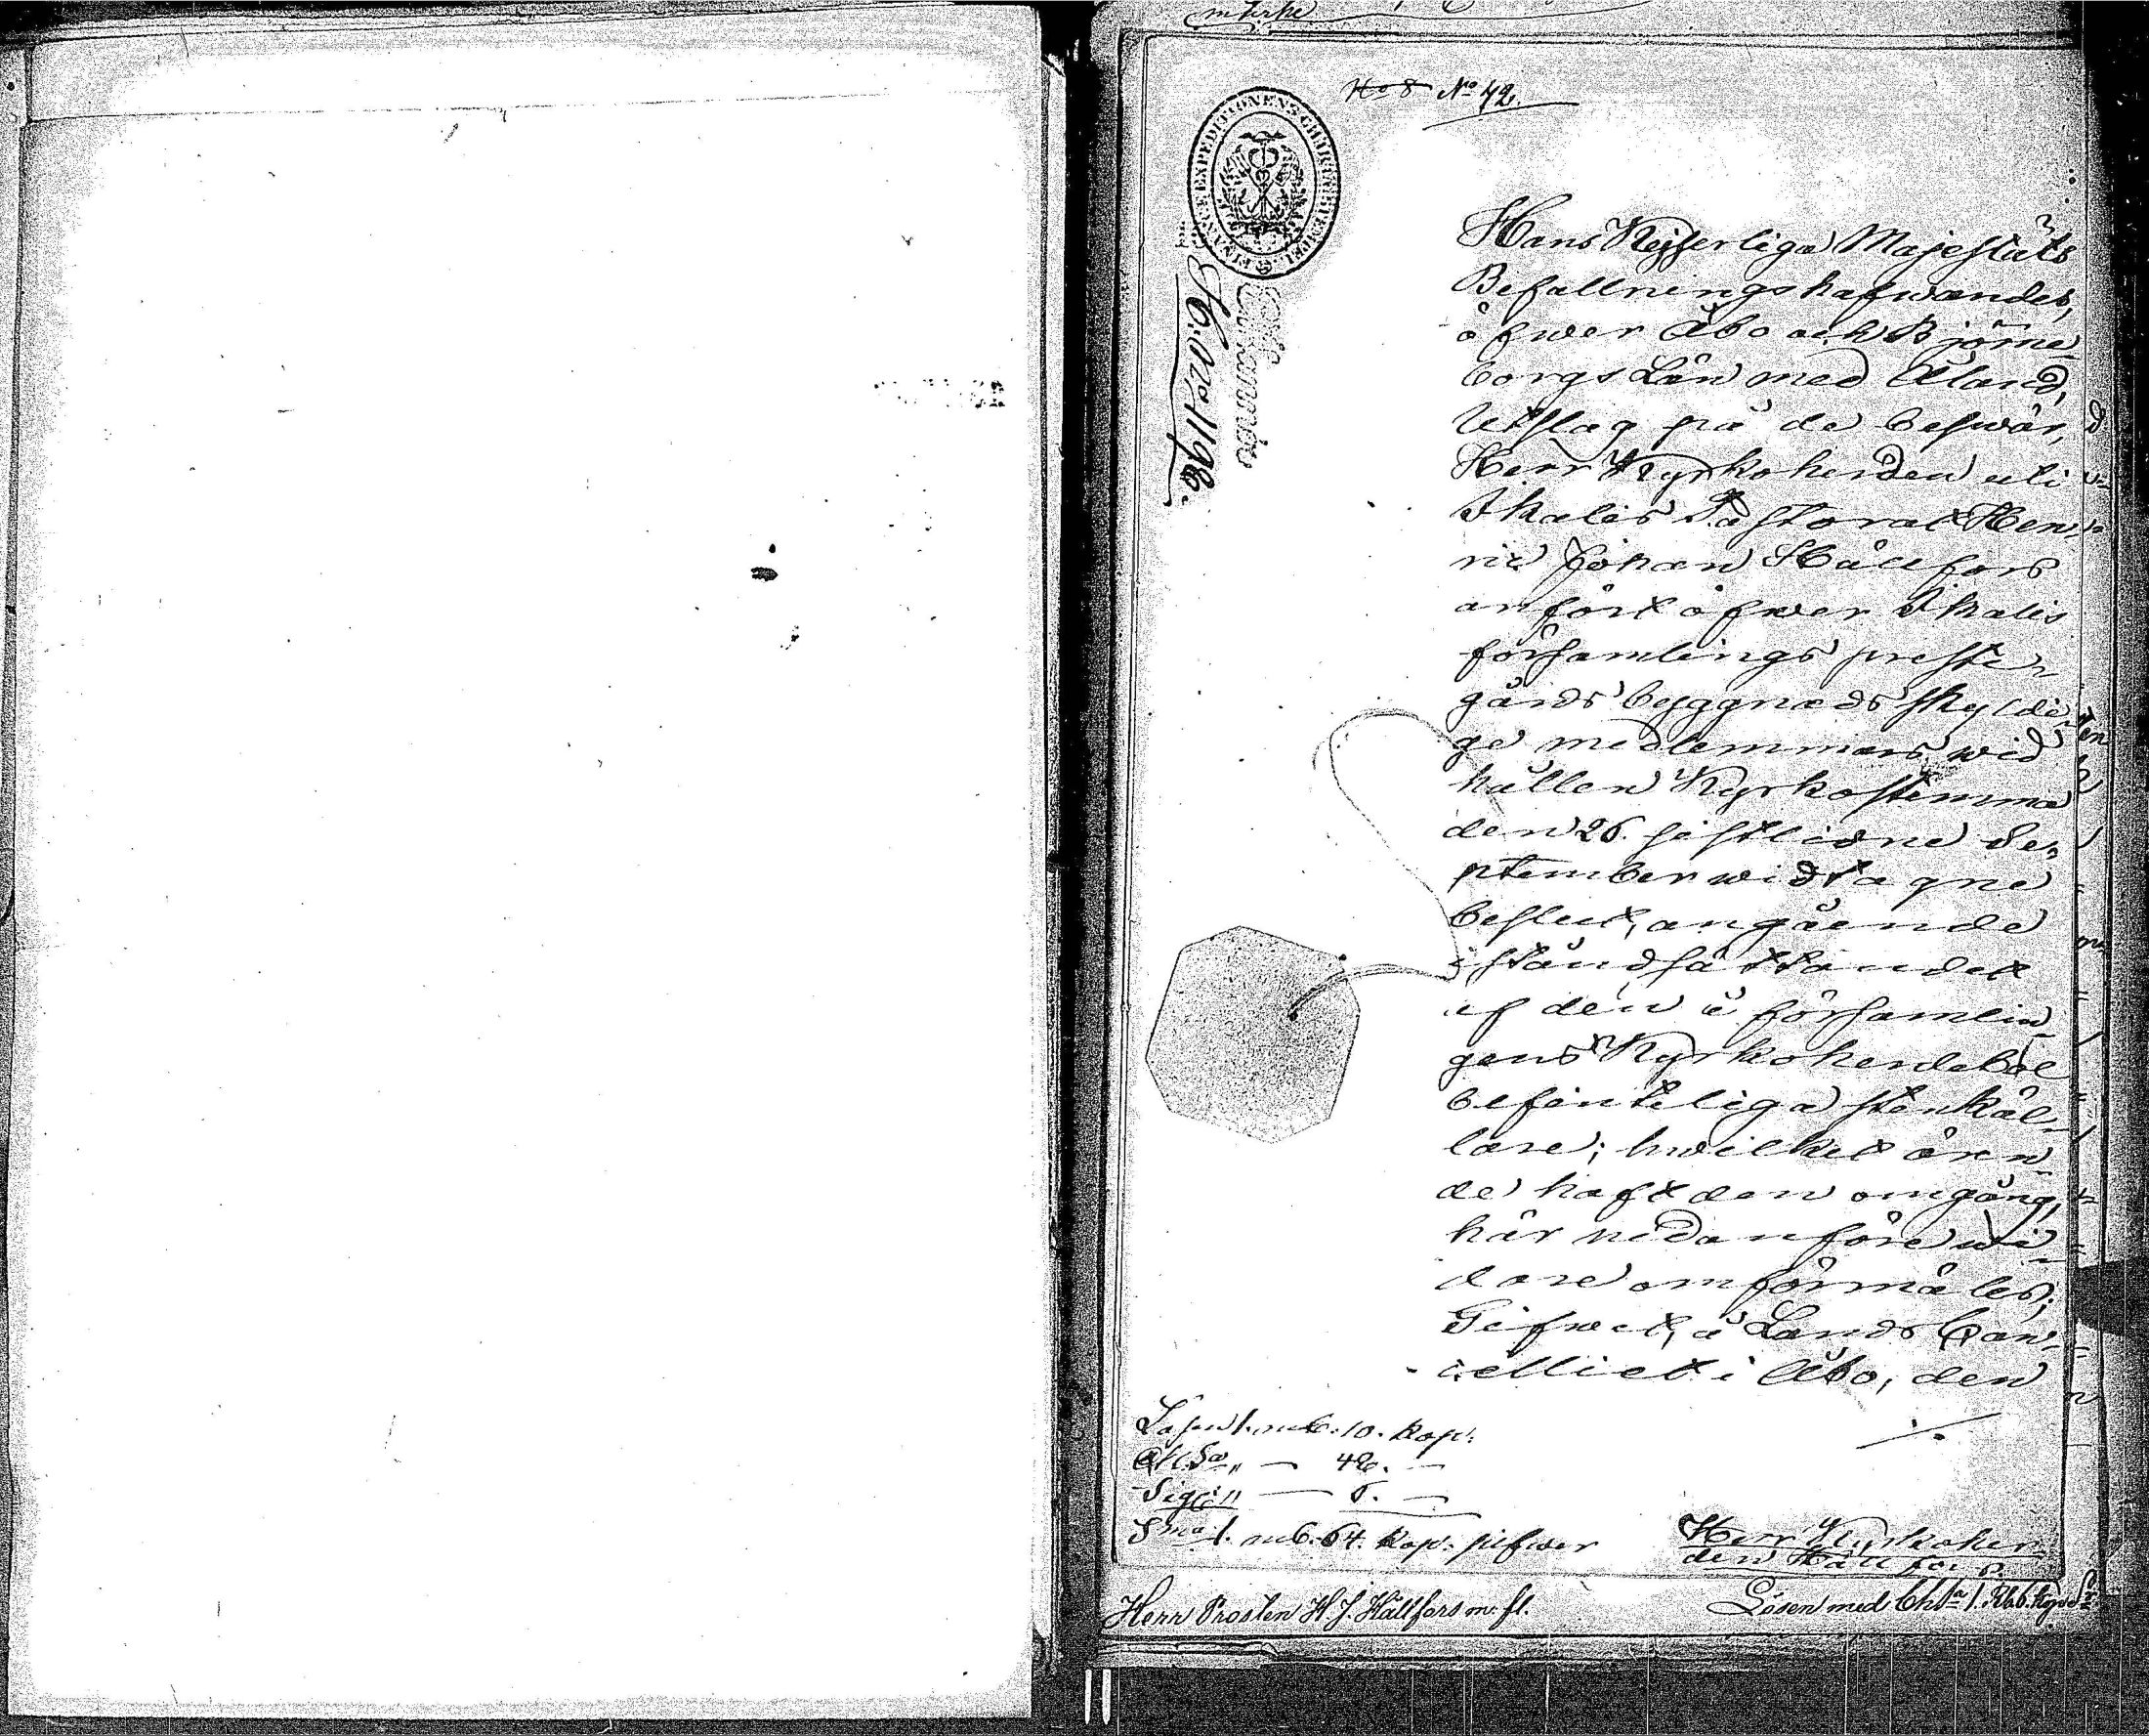 No 8 No 42.
FINANCE EXPEDITIONENS CHARTE STEMPEL
Hans Kejserliga Majestäts
Befallningshafwandes,
öfwer Åbo och Björne-
borgs Län med Åland,
Utslag på de beswär,
Herr Kyrkoherden uti
Ikalis Pastorat Hen-
ric Johan Hällfors
anfört öfwer Ikalis
församlings preste-
gårds byggnads skyldi-
ge medlemmars, wid
hållen Kyrkostemma
den 26. sistlidne Se-
ptember widtagne
beslut, angående
iståndsättandet
af den å församlin-
gens Kyrkoherdebol
befinteliga stenkäl-
lare; hwilket ären-
de haft den omgång,
här nedanföre wi-
dare omförmäles;
Gifwet, å Lands Can-
celliet i Åbo, den
Lösen 1. rub. 10. kop:
48.
Sigill 6.
Sma 1. rub. 64. kop: silfwer
Herr Kyrkoher-
den Hällfors.
Herr Prosten H. J. Hällfors m. fl.
Lösen med Cht 1. Rb. 6. kop. Sr